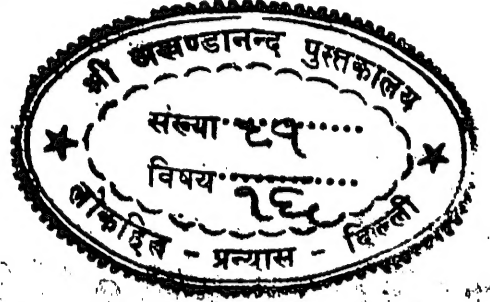 श्री अखण्डानन्द पुस्तकालय
संख्या
विषय १६
लोकहित - प्रन्यास - दिल्ली